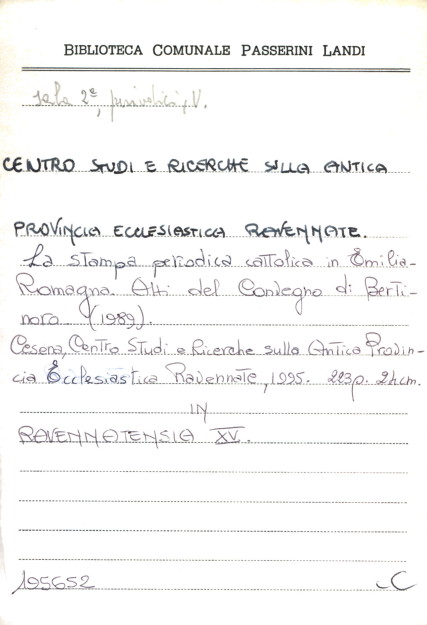 BIBLIOTECA COMUNALE PASSERINI LANDI
sala 2ª, periodici, V.
CENTRO STUDI E RICERCHE SULLA ANTICA
PROVINCIA ECCLESIASTICA RAVENNATE.
La stampa periodica cattolica in Emilia-
Romagna. Atti del Convegno di Berti-
noro (1989).
Cesena, Centro Studi e Ricerche sulla Antica Provin-
cia Ecclesiastica Ravennate, 1995. 223p. 24cm.
IN
RAVENNATENSIA XV.
195652 C